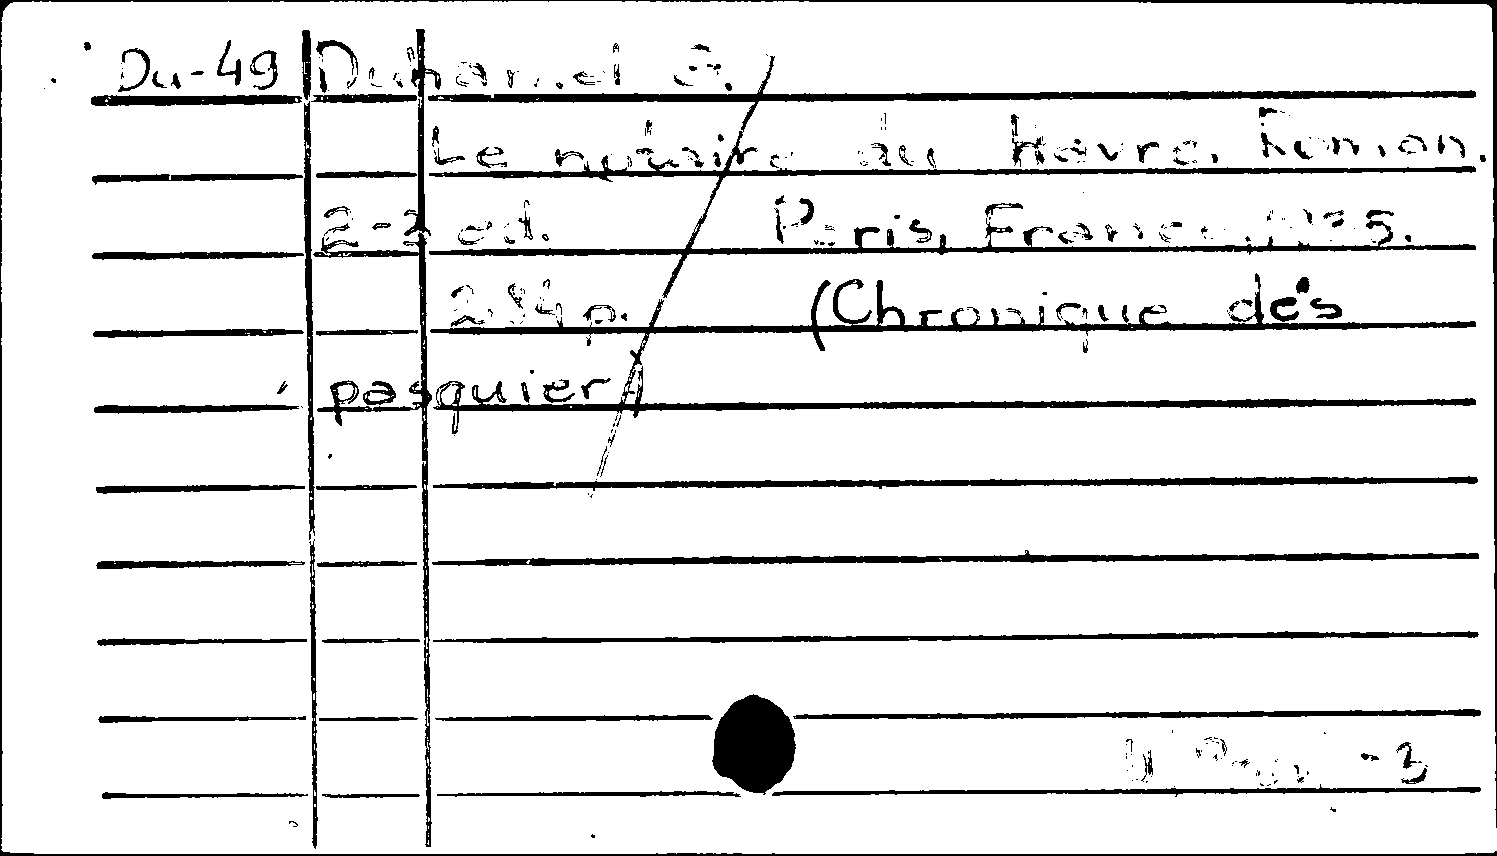 Du-49 Duhamel G.
Le notaire du Havre. Roman.
2-3 ed. Paris, France, 1935.
284 p. (Chronique des
pasquier)
-3